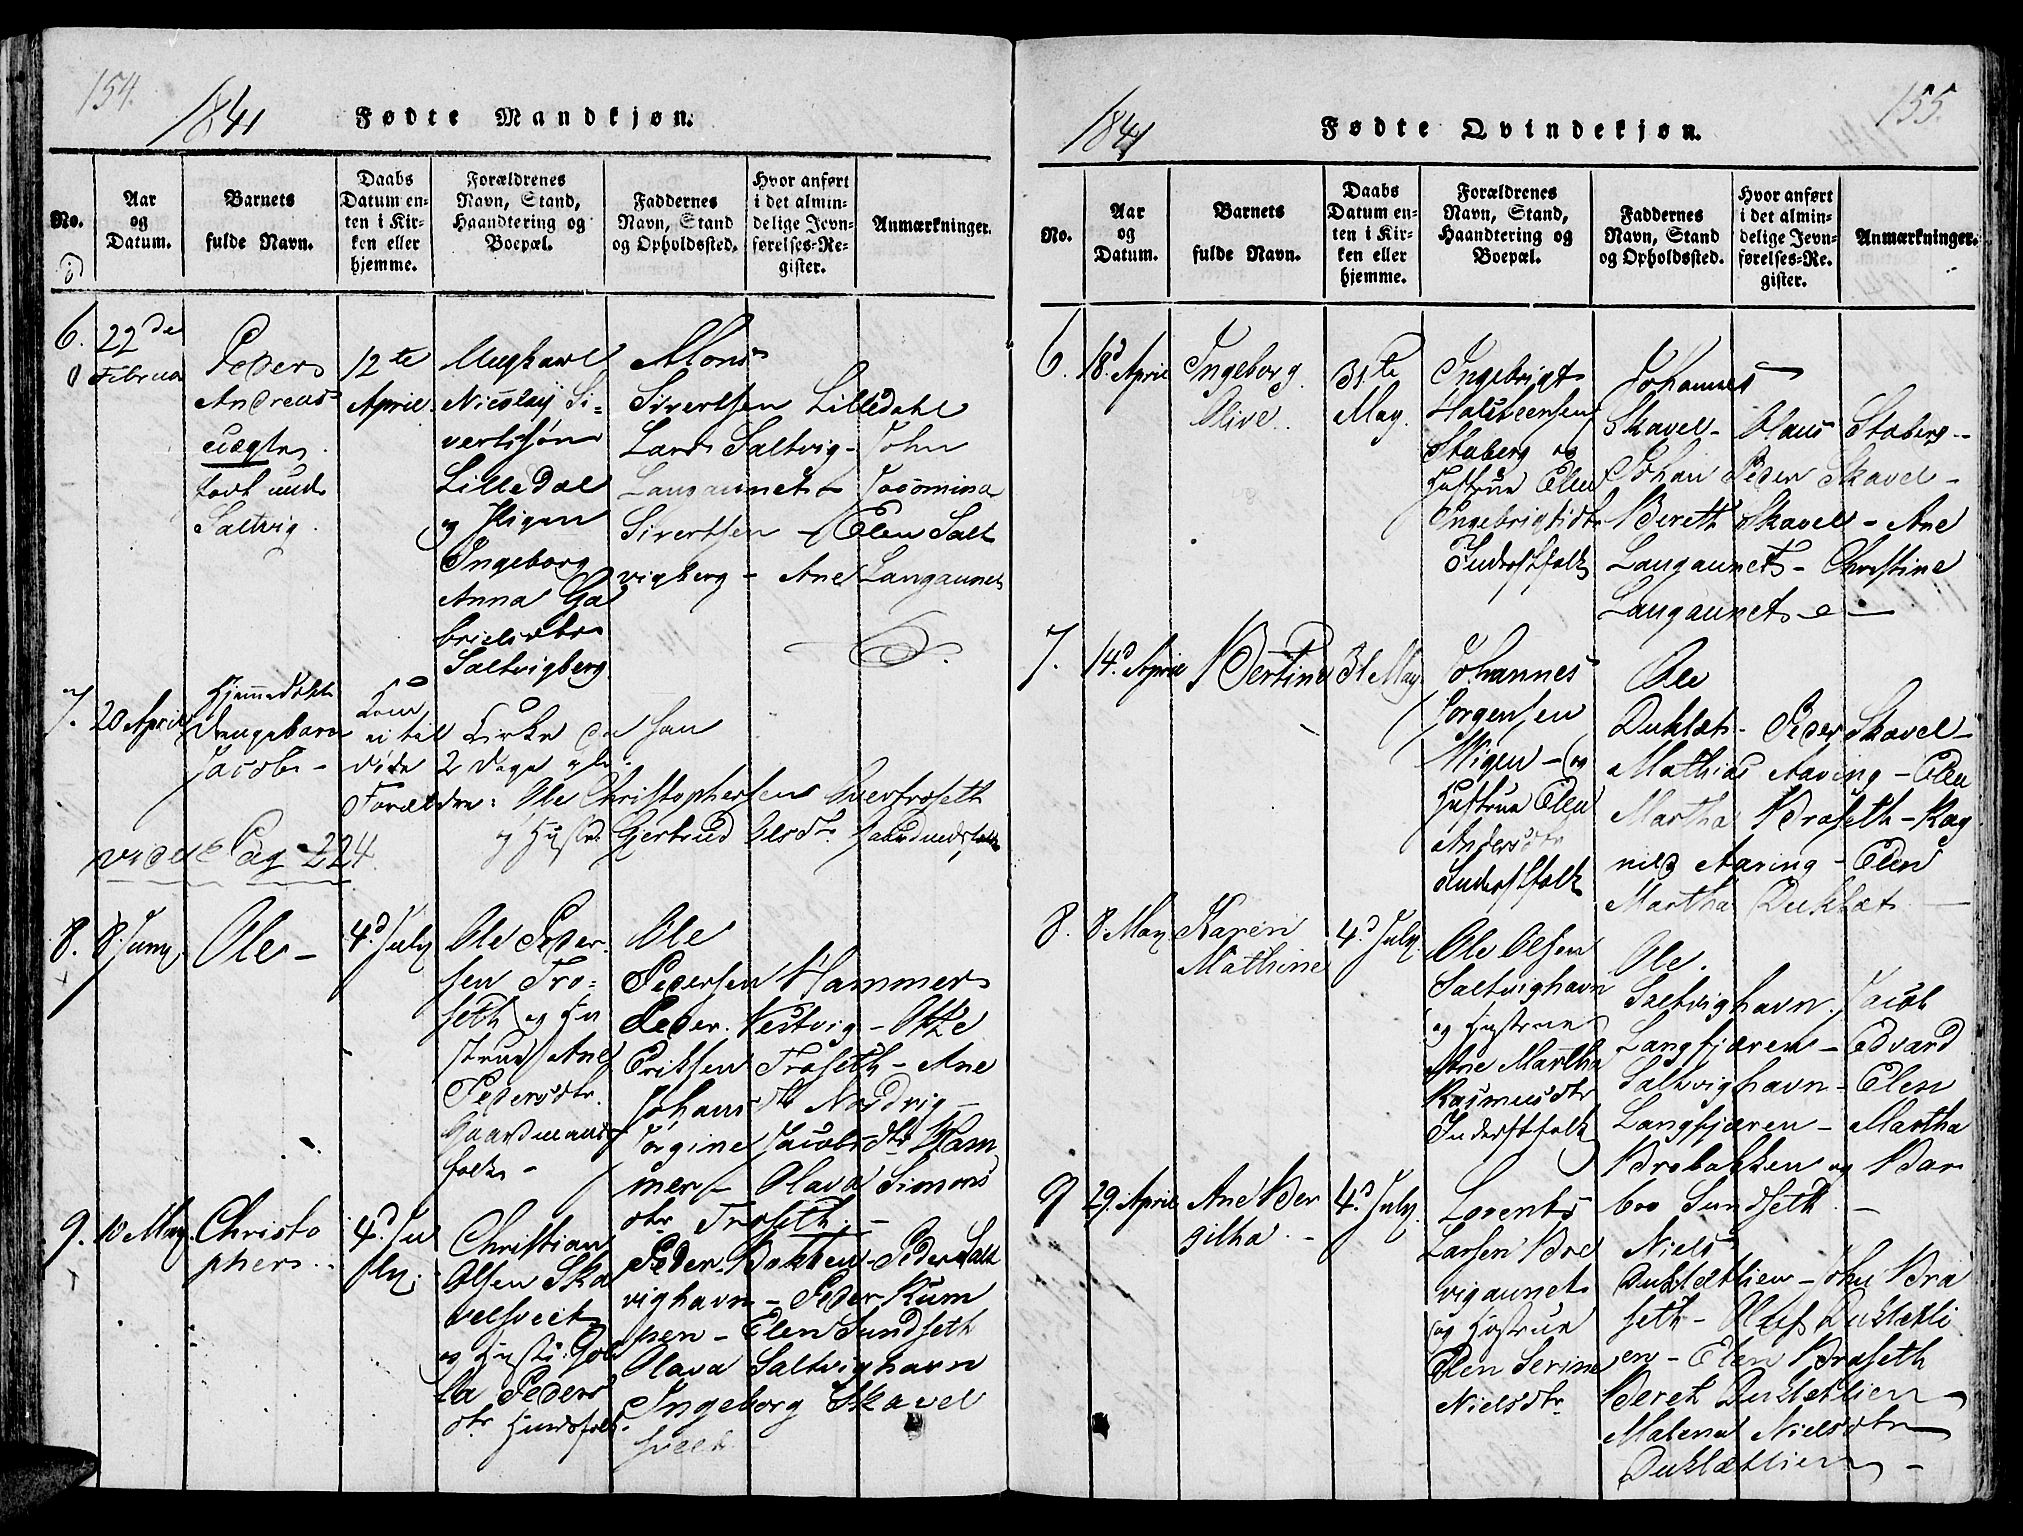 154.
1841
Fødte Mandkjøn.
No.
Aar
og
Datum.
Barnets
fulde Navn.
Daabs
Datum en-
ten i Kir-
ken eller
hjemme.
Forældrenes
Navn, Stand,
Haandtering og
Boepæl.
Faddernes
Navn, Stand
og Opholdssted.
Hvor anført
i det almin-
delige Jevn-
førelses-Re-
gister.
Anmærkninger.
6.
22de
Februar
Peder
Andreas
uægte
født und.
Saltvig.
12te
April.
Ungkarl
Nicolaÿ Si-
vertsøn
Lilledal
og Pigen
Ingeborg
Anna Ga
brielsdtr
Saltvigberg
Mons
Sivertsen Lilledahl
Lars Saltvig - John
Langaunet - Jacomina
Sivertsen - Elen Salt
vigberg - Ane Langaunet
7.
20 April
Hjemmedøbt
Drengebarn
Jacob -
Kom
ei til Kirke da han
døde 2 Dage gl.
Forældre: Ole Christophersen Overtroseth
og Hust. Gjertrud Olsdtr Gaardmandsfolk
vide Pag 224.
8.
8 Juny
Ole -
4d July
Ole Peder-
sen Tro-
seth og Hu
strue Ane
Pedersdtr.
Gaardmands
folk -
Ole
Pedersen Hammer
Peder Nestvig - Otte
Eriksen Troseth - Ane
Johansdtr Nordvig -
Jørgine Jacobsdtr Ham
mer - Olava Simons
dtr Troseth. -
9.
10 May
Christo
pher.
4d Ju
ly.
Christian
Olsen Ska
velsveet
og Hustr. Gol
la Peders
dtr Huusfolk.
Peder Bakken - Peder Salt
vighavn - Peder Rum
pen - Elen Sundseth
Olava Saltvighavn
Ingeborg Skavel
sveet
155.
1841
Fødte Qvindekjøn.
No.
Aar
og
Datum.
Barnets
fulde Navn.
Daabs
Datum en-
ten i Kir-
ken eller
hjemme.
Forældrenes
Navn, Stand,
Haandtering og
Boepæl.
Faddernes
Navn, Stand
og Opholdssted.
Hvor anført
i det almin-
delige Jevn-
førelses-Re-
gister.
Anmærkninger.
6.
18d April
Ingeborg
Olive.
31te
May.
Ingebrigt
Halsteensen
Staberg og
Hustrue Elen
Ingebrigtsdtr
Inderstfolk
Johannes
Skavel - Olaus Staberg -
Johan Peder Skavel -
Bereth Skavel - Ane
Langaunet - Christine
Langaunet -
7.
14d April
Bertine
31 May
Johannes
Jørgensen
Wigen - og
Hustrue Elen
Andersdtr
Inderstfolk
Ole
Duklæt - Peder Skavel -
Mathias Aaving - Elen
Martha Braseth - Rag
nild Aaving - Elen
Martha Duklæt. -
8.
8 May
Karen
Mathine
4d July.
Ole Olsen
Saltvighavn
og Hustrue
Ane Martha
Rasmusdtr
Inderstfolk
Ole
Saltvighavn. Jacob
Langfjæren - Edvard
Saltvighavn - Elen
Langfjæren - Martha
Brobakken og Bar
bro Sundseth. -
9
29 April
Ane Ber
githa. -
4d July.
Lorents
Larsen Bre
vigaunet
og Hustrue
Elen Serine
Nielsdtr.
Niels
Duklætlien - John Bra
seth - Oluf Duklætli
en - Elen Braseth
Beret Duklætlien -
Malena Nielsdtr
Duklætlien -